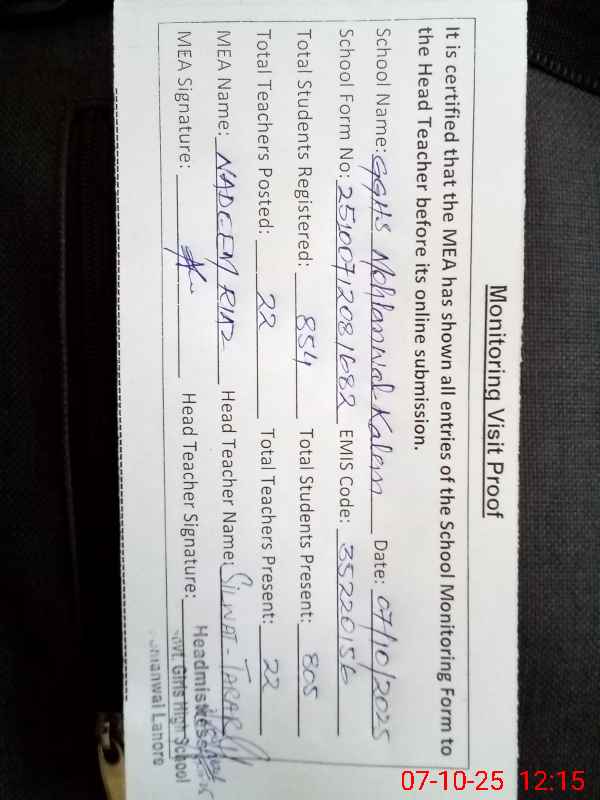 Monitoring Visit Proof
It is certified that the MEA has shown all entries of the School Monitoring Form to
the Head Teacher before its online submission.
School Name: GGHS Mohlanwal Kalan Date: 07/10/2025
School Form No: 25100712081682 EMIS Code: 35220156
Total Students Registered: 854 Total Students Present: 805
Total Teachers Posted: 22 Total Teachers Present: 22
MEA Name: NADEEM RIAZ Head Teacher Name: SILWAT - TARAR
MEA Signature: Head Teacher Signature:
Headmistress
Govt. Girls High School
Lahore
07-10-25 12:15